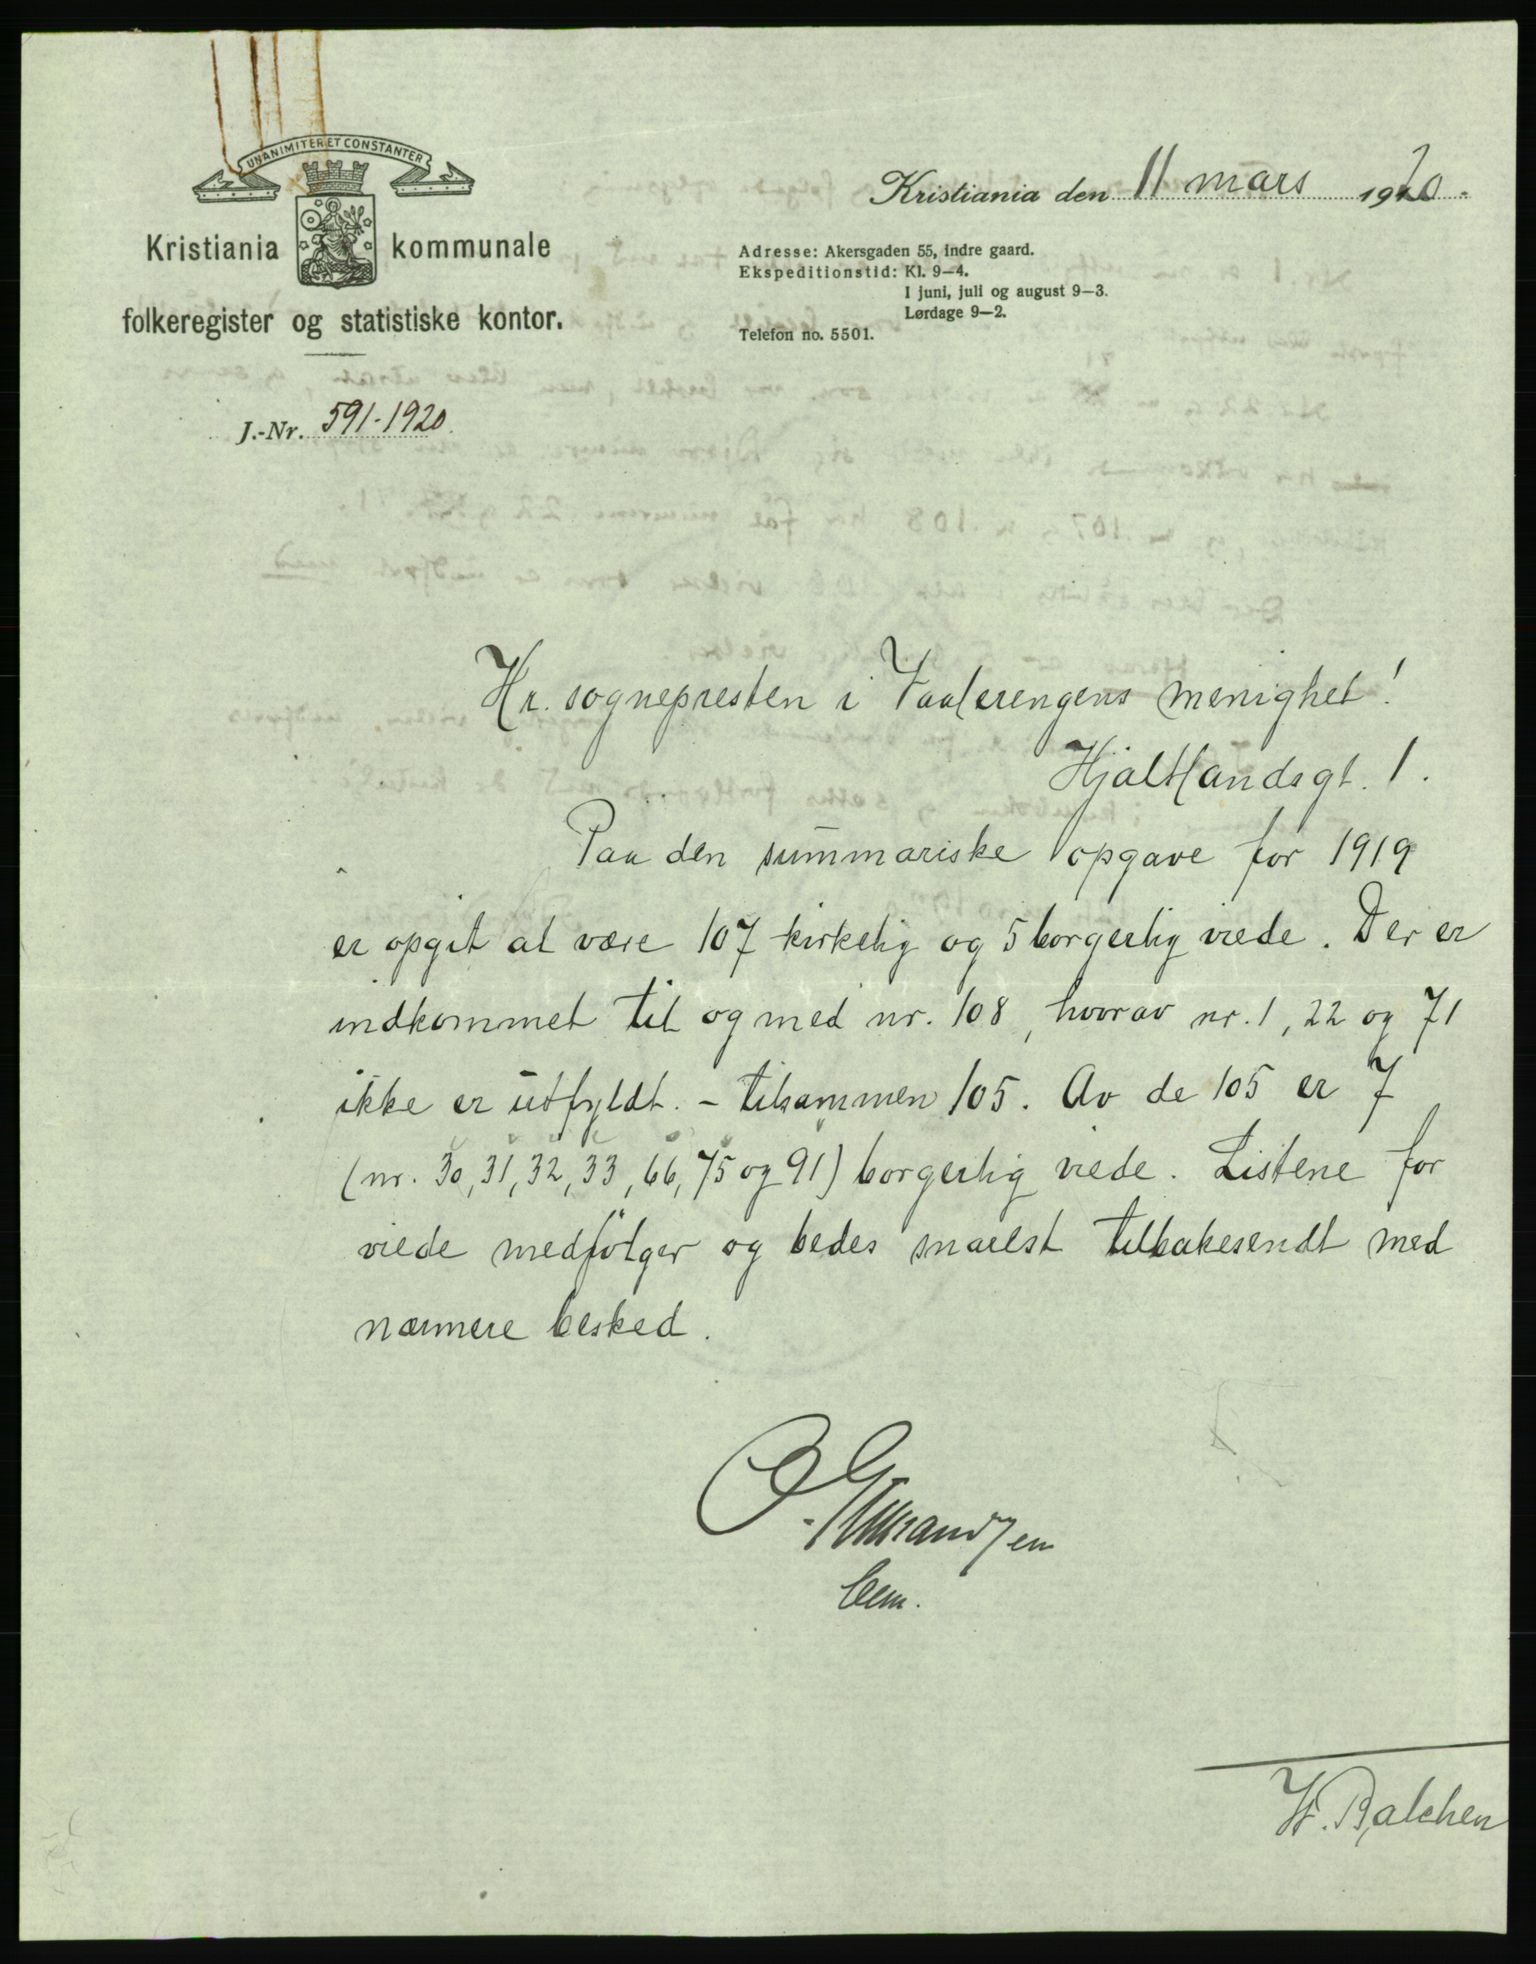 UNANIMITER ET CONSTANTER
Kristiania kommunale
folkeregister og statistiske kontor.
J.-Nr. 591-1920.
Kristiania den 11 mars 1920.
Adresse: Akersgaden 55, indre gaard.
Ekspeditionstid: Kl. 9—4.
I juni, juli og august 9—3.
Lørdage 9—2.
Telefon no. 5501.
Hr. sognepresten i Vaalerengens menighet!
Hjaltlandsgt. 1.
Paa den summariske opgave for 1919
er opgit at være 107 kirkelig og 5 borgerlig viede. Der er
indkommet til og med nr. 108, hvorav nr. 1, 22 og 71
ikke er utfyldt. - tilsammen 105. Av de 105 er 7
(nr. 30, 31, 32, 33, 66, 75 og 91) borgerlig viede. Listene for
viede medfølger og bedes snarest tilbakesendt med
nærmere besked.
W. Balchen